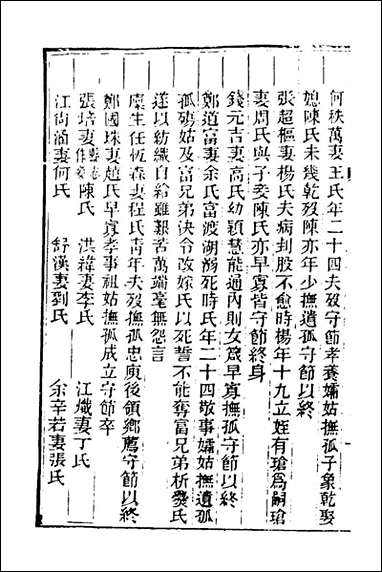 何秩萬妻王氏年二十四夫歿守節孝養孀姑撫孤子象乾娶
媳陳氏未幾乾歿陳亦年少撫遺孤守節以終
張超樞妻楊氏夫病刲股不愈時楊年十九立姪有瑲爲嗣瑲
妻周氏與子妻陳氏亦早寡皆守節終身
錢元吉妻高氏幼穎慧能通內則女箴早寡撫孤守節以終
鄭道富妻余氏富渡湖溺死時氏年二十四敬事孀姑撫遺孤
孤殤姑及富兄弟決令改嫁氏以死誓不能奪富兄弟析爨氏
遂以紡織自給雖艱苦萬端毫無怨言
廩生任恆森妻程氏青年夫歿撫孤忠庾後領鄉薦守節以終
鄭國珠妻趙氏早寡孝事祖姑撫孤成立守節卒
張培妻 陳氏 洪緯妻李氏 江熾妻丁氏
江尙涵妻何氏 舒漢妻劉氏 余辛若妻張氏